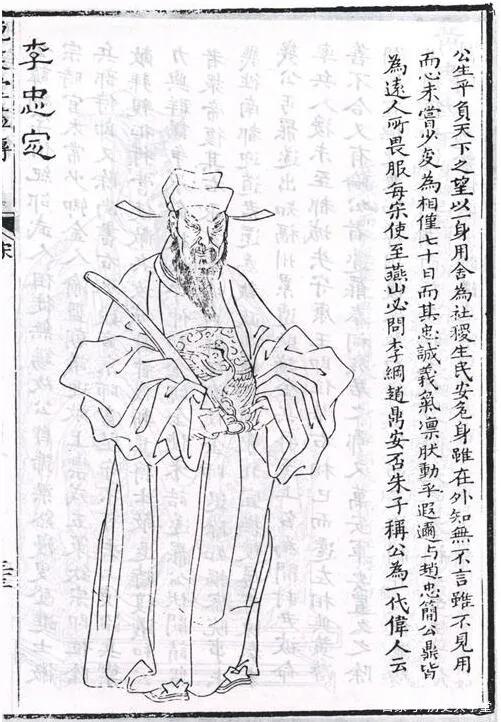 公生平負天下之望以一身用舍為社稷生民安危身雖在外知無不言雖不見用
而心未嘗少变為相僅七十日而其忠誠義氣凛肰動乎遐邇与趙忠簡公鼎皆
為遠人所畏服每宋使至燕山必問李綱趙鼎安否朱子稱公為一代偉人云
李忠㝎